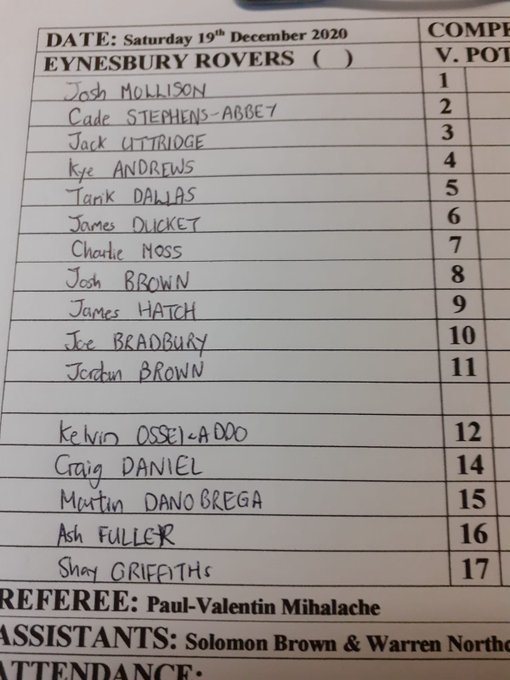 DATE: Saturday 19th December 2020
EYNESBURY ROVERS ( )
V. POT
1 Josh MOLLISON
2 Cade STEPHENS-ABBEY
3 Jack UTTRIDGE
4 Kye ANDREWS
5 Tarik DALLAS
6 James DUCKET
7 Charlie MOSS
8 Josh BROWN
9 James HATCH
10 Joe BRADBURY
11 Jordan BROWN
12 Kelvin OSSEI-ADDO
14 Craig DANIEL
15 Martin DANOBREGA
16 Ash FULLER
17 Shay GRIFFITHS
REFEREE: Paul-Valentin Mihalache
ASSISTANTS: Solomon Brown & Warren Northc
ATTENDANCE: